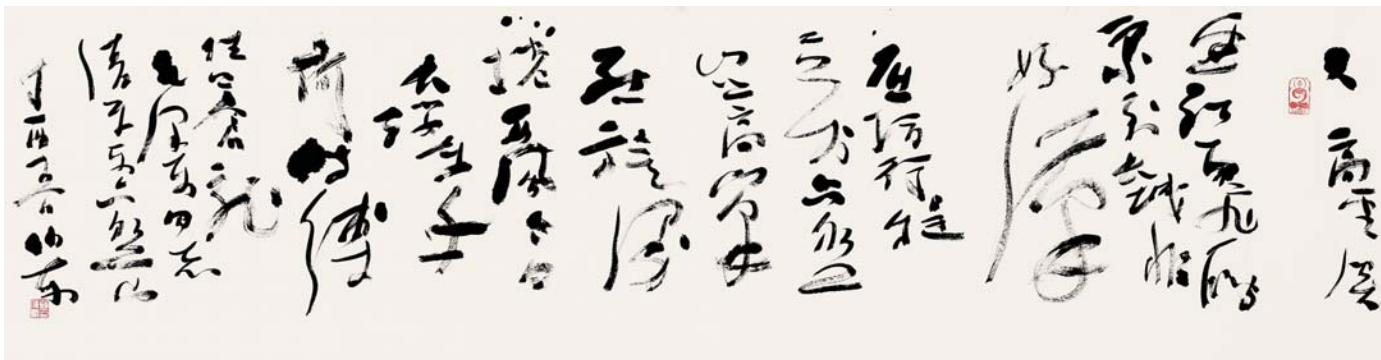 天高雲淡
望斷南飛雁
不到長城非
好漢
屈指行程
二万六盤
山上高峰
紅旗漫
捲西風今日
長纓在手
何時縛
住蒼龍
毛澤東同志
清平樂六盤山
丁酉